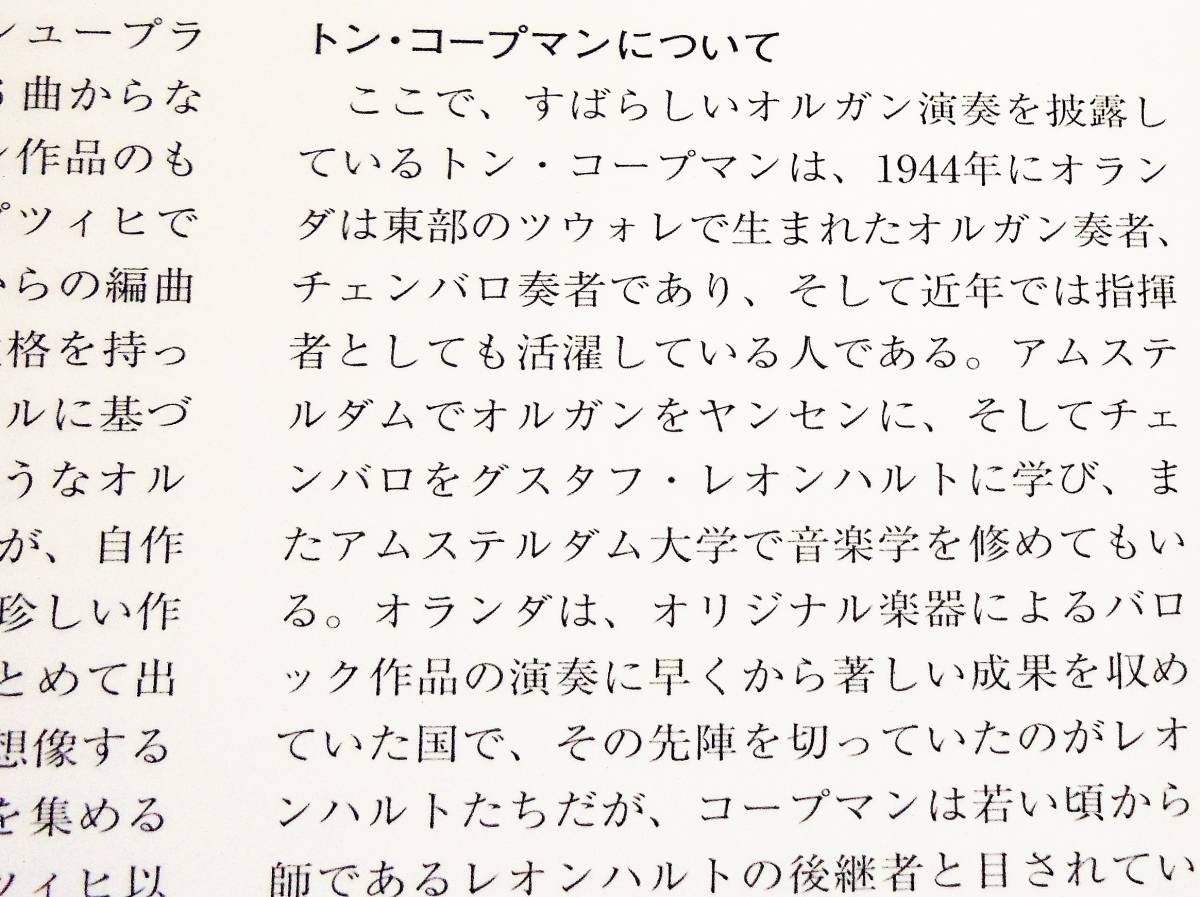 シュープラ
曲からな
作品のも
プツィヒで
からの編曲
格を持っ
ルに基づ
うなオル
が、自作
珍しい作
とめて出
想像する
を集める
ツィヒ以
トン・コープマンについて
ここで、すばらしいオルガン演奏を披露し
ているトン・コープマンは、1944年にオラン
ダは東部のツウォレで生まれたオルガン奏者、
チェンバロ奏者であり、そして近年では指揮
者としても活濯している人である。アムステ
ルダムでオルガンをヤンセンに、そしてチェ
ンバロをグスタフ・レオンハルトに学び、ま
たアムステルダム大学で音楽学を修めてもい
る。オランダは、オリジナル楽器によるバロ
ック作品の演奏に早くから著しい成果を収め
ていた国で、その先陣を切っていたのがレオ
ンハルトたちだが、コープマンは若い頃から
師であるレオンハルトの後継者と目されてい